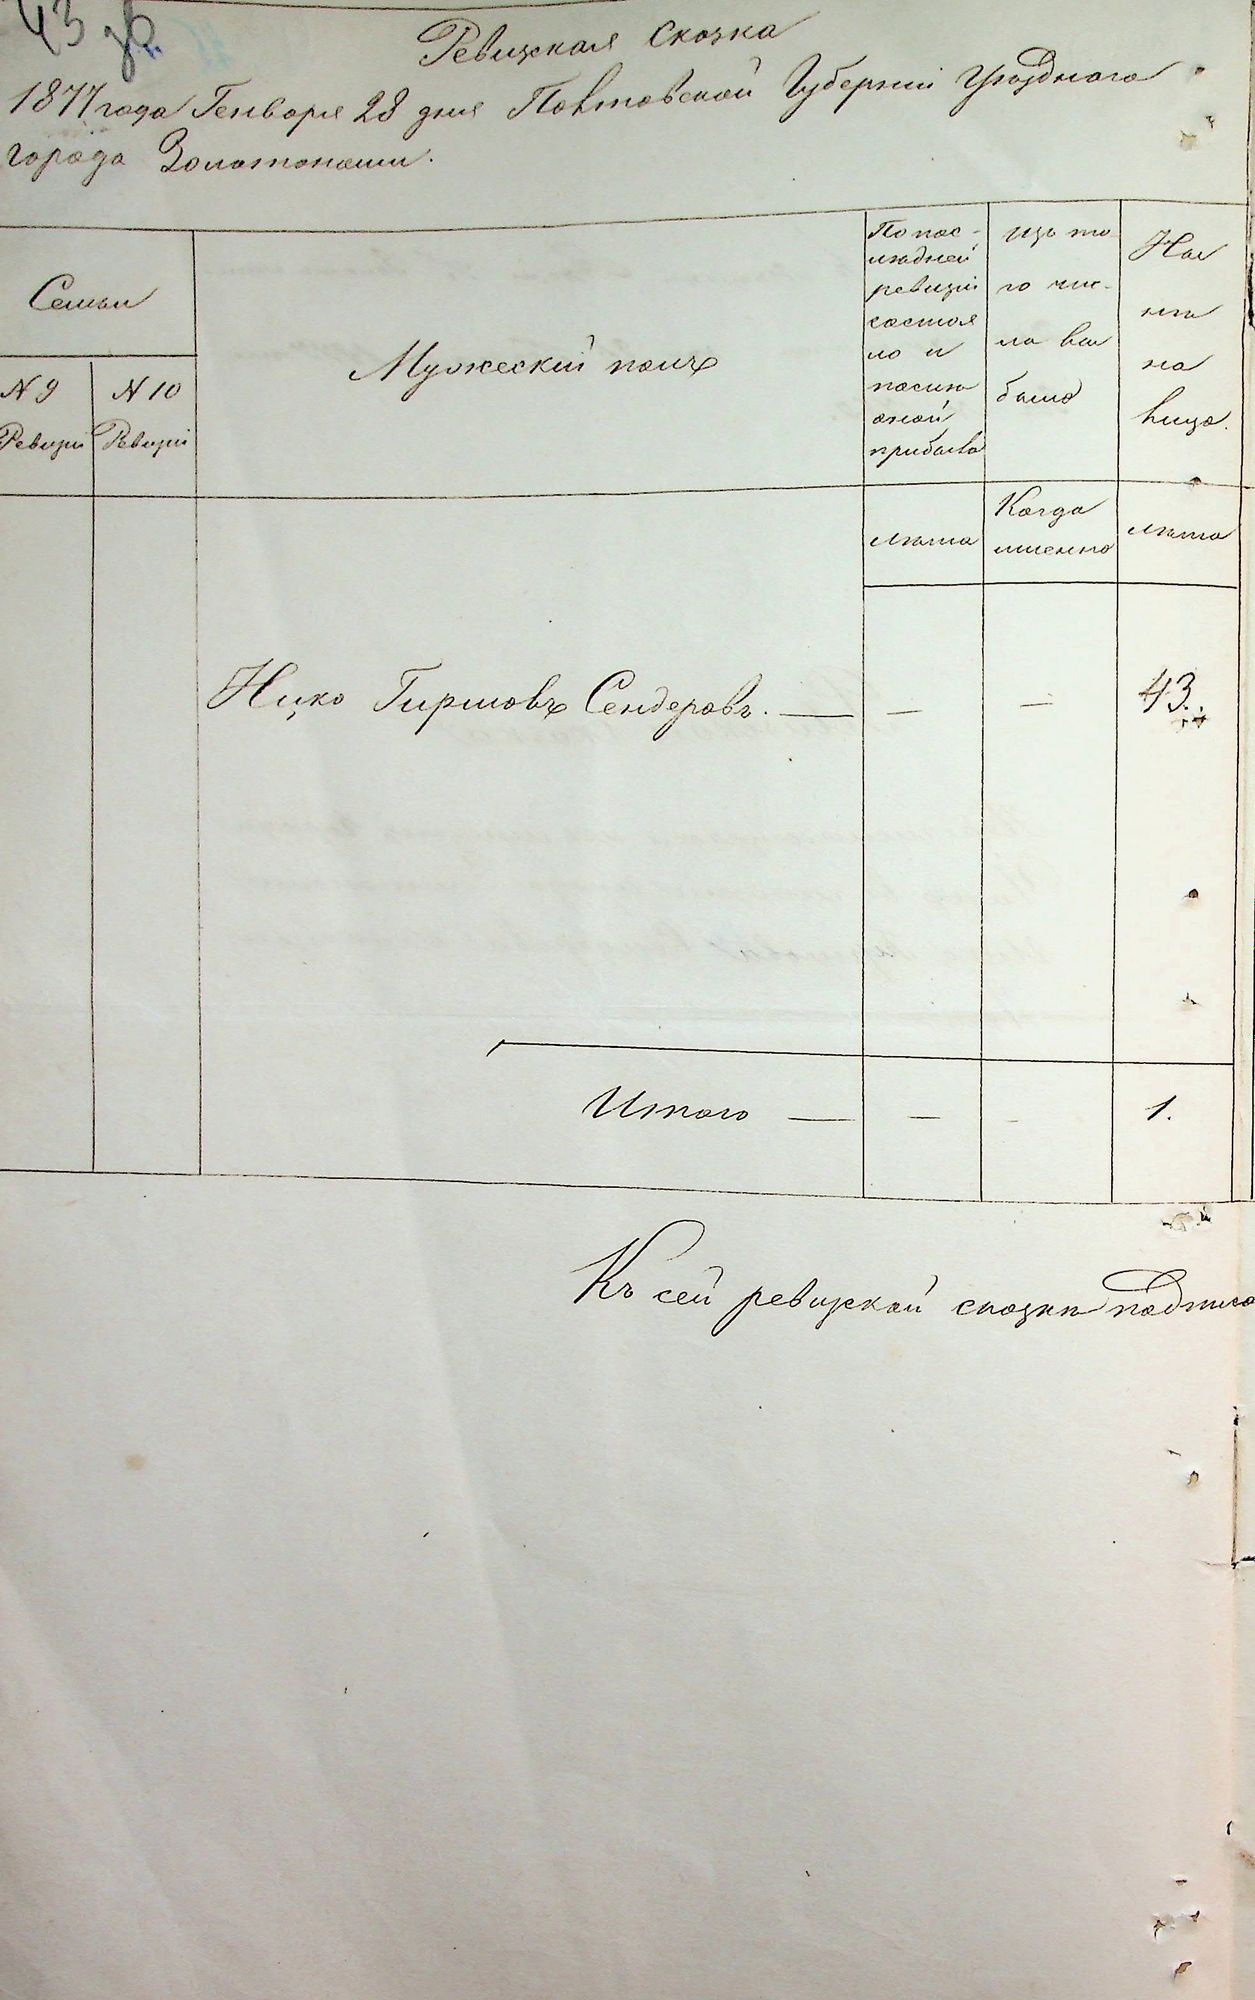 43
Ревизская сказка
1877 года Генваря 28 дня Полтовской Губернии Уезднаго
города Золотоноши.
Семьи
N 9
Ревизіи
N 10
Ревизіи
Мужескій полъ
По пос-
лѣдней
ревизіи
состоя
ло и
послѣ
оной
прибыло
Изъ то
го чис-
ла вы
было
На
ли
на
лицо.
лѣта
Когда
именно
лѣта
Ицко Гиршовъ Сендеровъ. — — — 43.
Итого — — - 1.
Къ сей ревизской сказкѣ подписа